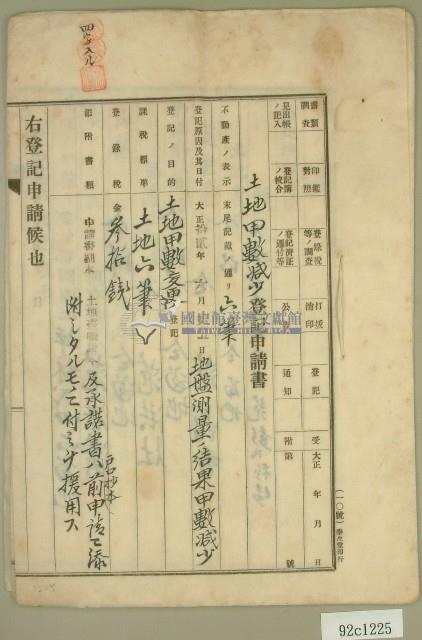 (一〇號)
受 大正 年 月 日
附 第 號
登記
通知
打拔
濟印
公告
登錄稅
等ノ調査
登記濟証
ノ還付等
印鑑
對照
登記簿
ノ校合
書類
調査
見出帳
ノ記入
土地甲數減少登記申請書
不動產ノ表示 末尾記載ノ通リ 六筆
登記原因及其日付 大正拾貳年六月 日 地盤測量ノ結果甲數減少
登記ノ目的 土地甲數變更登記
課稅標準 土地六筆
登錄稅 金參拾錢
添附書類 申請書副本
反承諾書ハ前申請ニ添
附シタルモノニ付之ヲ援用ス
右登記申請候也
國史館臺灣文獻館
TAIWAN HISTORICA
92c1225